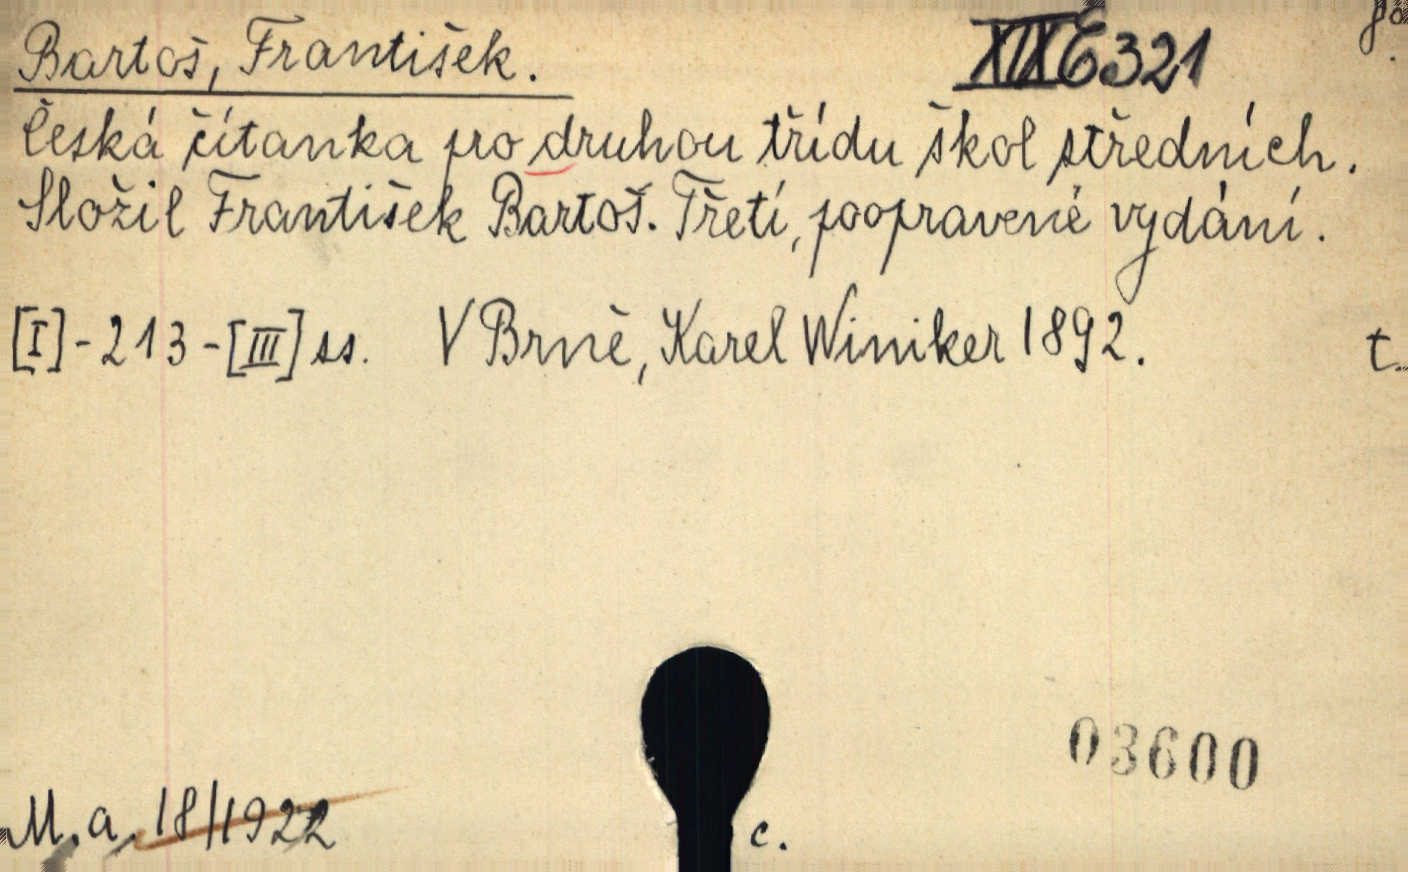 Bartoš, František. XIX E 321
Česká čítanka pro druhou třídu škol středních.
Složil František Bartoš. Třetí, poopravené vydání.
[I]-213-[III] ss. V Brně, Karel Winiker 1892.
t.
03600
M.a. 18/1922
c.